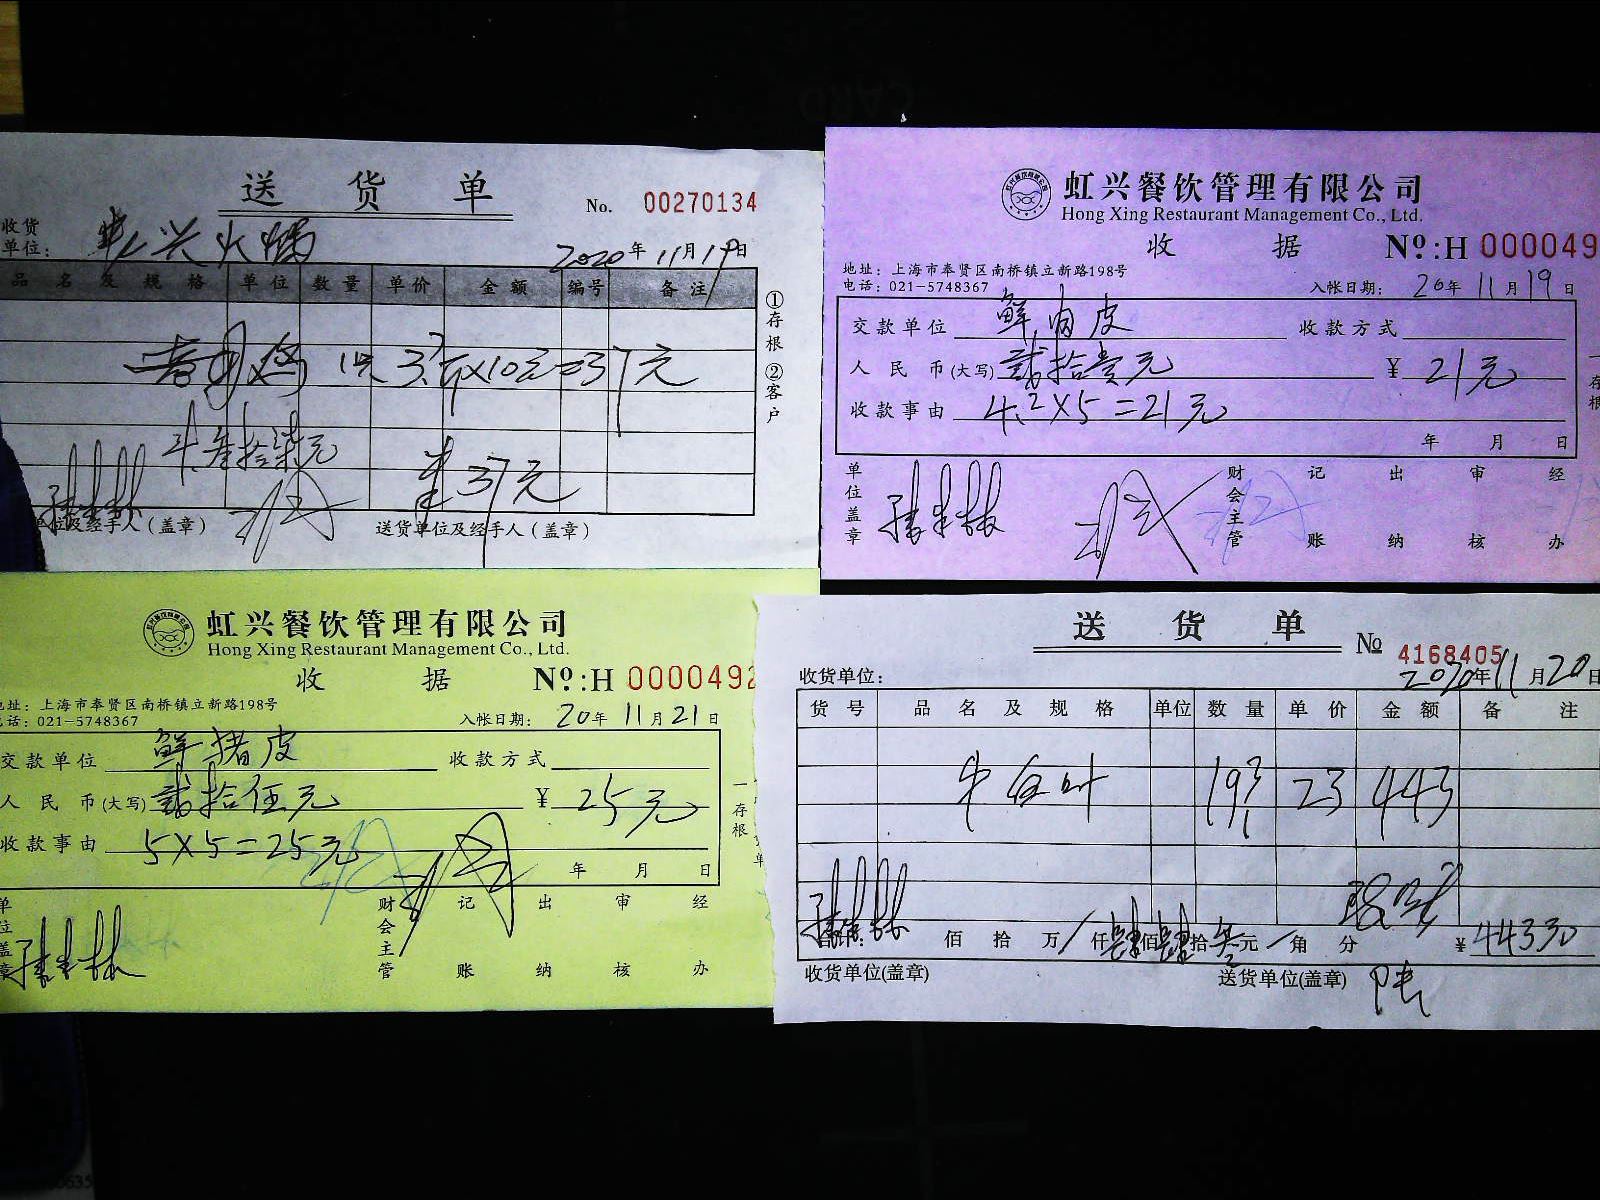 送货单
No. 00270134
收货
单位:
兴火锅
2020年11月19日
品名及规格 单位 数量 单价 金额 编号 备注
母鸡 1只 3.7斤×10元=37元
叁拾柒元
37元
单位及经手人（盖章） 送货单位及经手人（盖章）
①存根 ②客户
虹兴餐饮管理有限公司
Hong Xing Restaurant Management Co., Ltd.
收据 Nº:H 000049
地址：上海市奉贤区南桥镇立新路198号
电话：021-5748367
入帐日期： 20年11月19日
交款单位 鲜肉皮 收款方式
人民币(大写) 贰拾壹元 ¥ 21元
收款事由 4.2×5=21元
年 月 日
单位盖章 财会主管 记账 出纳 审核 经办
虹兴餐饮管理有限公司
Hong Xing Restaurant Management Co., Ltd.
收据 Nº:H 0000492
地址：上海市奉贤区南桥镇立新路198号
电话：021-5748367
入帐日期： 20年11月21日
交款单位 鲜猪皮 收款方式
人民币(大写) 贰拾伍元 ¥ 25元
收款事由 5×5=25元
年 月 日
一存根
单位盖章 财会主管 记账 出纳 审核 经办
送货单
№ 4168405
收货单位：
2020年11月20日
货号 品名及规格 单位 数量 单价 金额 备注
牛百叶 23 443
合计： 佰 拾 万 仟 肆佰 肆拾 叁元 角 分 ¥ 44330
收货单位(盖章) 送货单位(盖章)